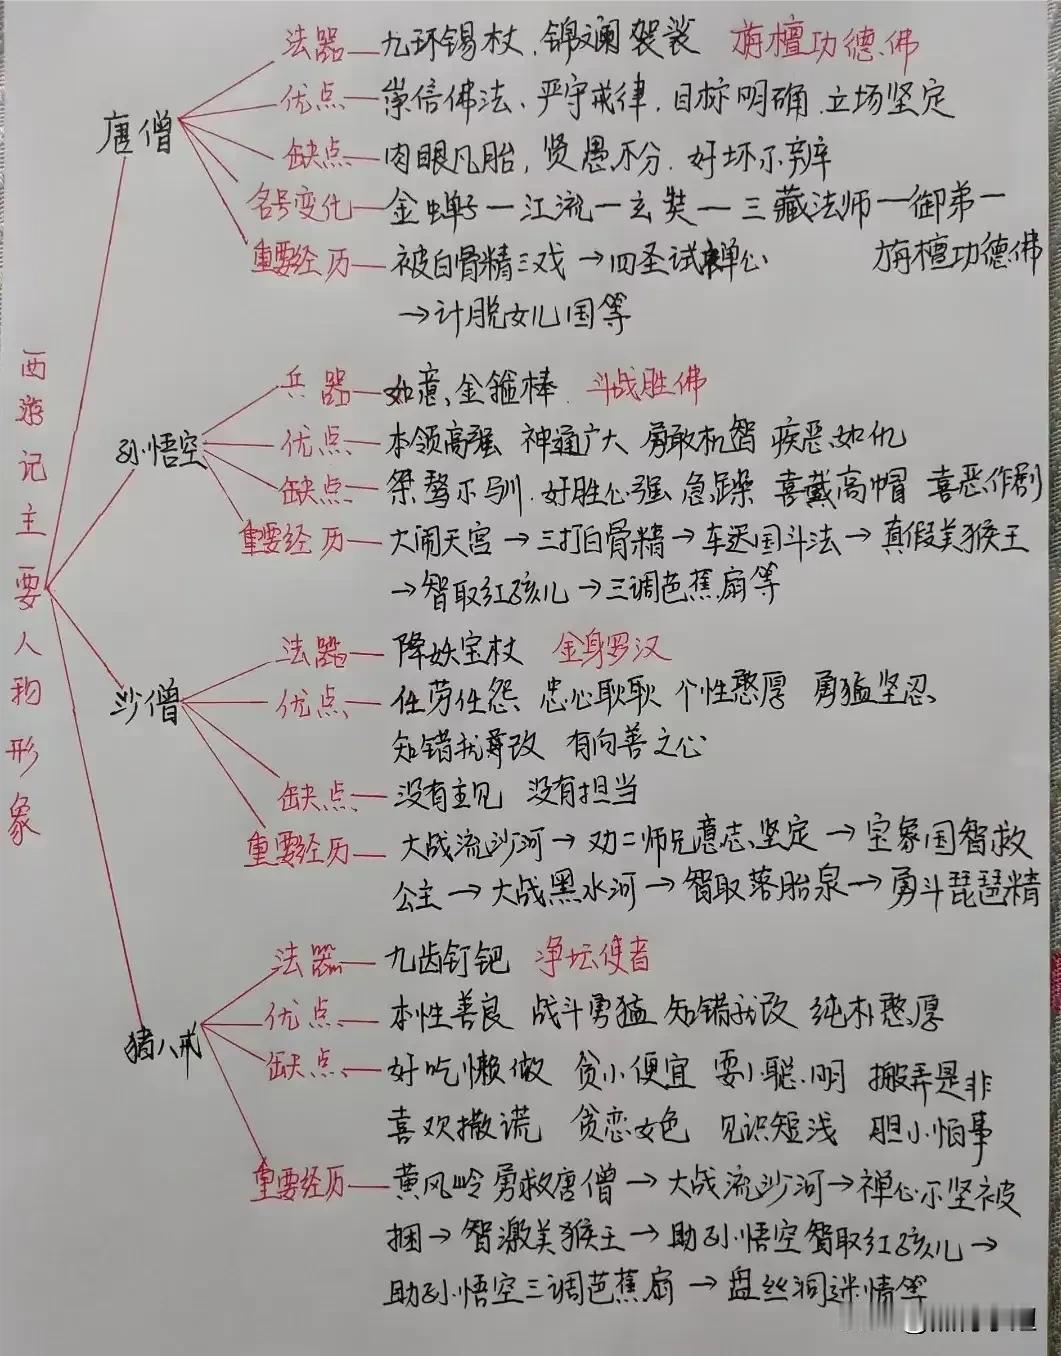 西游记主要人物形象
唐僧
法器—九环锡杖、锦斓袈裟 旃檀功德佛
优点—崇信佛法、严守戒律、目标明确、立场坚定
缺点—肉眼凡胎，贤愚不分、好坏不辨
名号变化—金蝉子—江流—玄奘—三藏法师—御弟—
旃檀功德佛
重要经历—被白骨精三戏→四圣试禅心
→计脱女儿国等
孙悟空
兵器—如意金箍棒 斗战胜佛
优点—本领高强 神通广大 勇敢机智 疾恶如仇
缺点—桀骜不驯、好胜心强 急躁 喜戴高帽 喜恶作剧
重要经历—大闹天宫→三打白骨精→车迟国斗法→真假美猴王
→智取红孩儿→三调芭蕉扇等
沙僧
法器—降妖宝杖 金身罗汉
优点—任劳任怨 忠心耿耿 个性憨厚 勇猛坚忍
知错就改 有向善之心
缺点—没有主见 没有担当
重要经历—大战流沙河→劝二师兄意志坚定→宝象国智救
公主→大战黑水河→智取落胎泉→勇斗琵琶精
猪八戒
法器—九齿钉钯 净坛使者
优点—本性善良 战斗勇猛 知错就改 纯朴憨厚
缺点—好吃懒做 贪小便宜 耍小聪明 搬弄是非
喜欢撒谎 贪恋女色 见识短浅 胆小怕事
重要经历—黄风岭勇救唐僧→大战流沙河→禅心不坚被
捆→智激美猴王→助孙悟空智取红孩儿→
助孙悟空三调芭蕉扇→盘丝洞迷情等